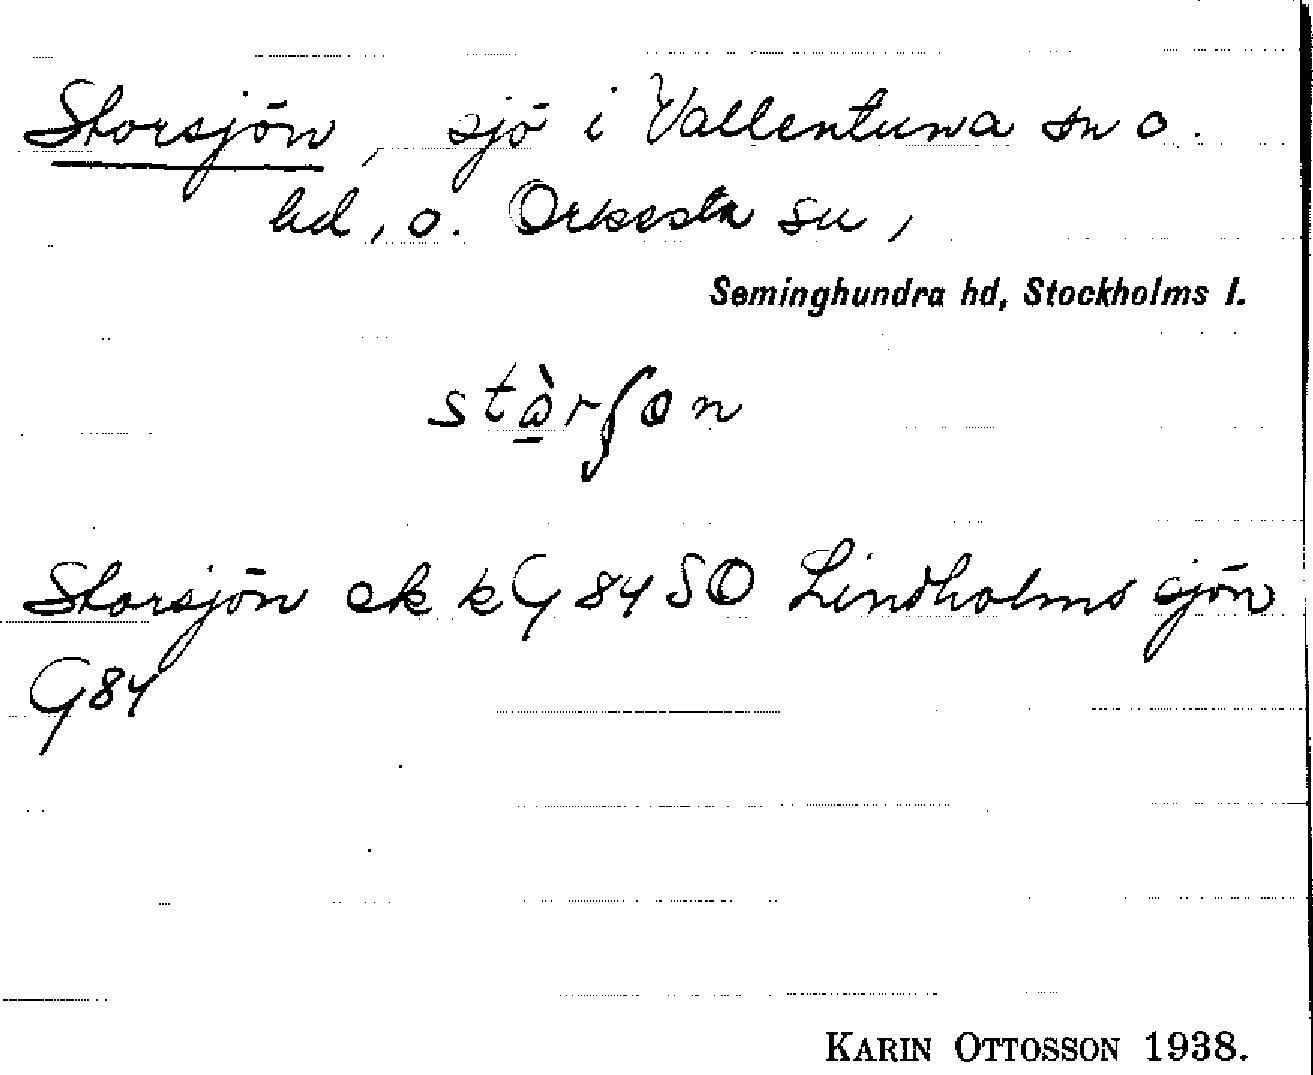 Storsjön, sjö i Vallentuna sn o.
hd, o. Orkesta sn,
Seminghundra hd, Stockholms l.
stàrʃon
Storsjön ek kG84 SO Lindholmssjön
G84
KARIN OTTOSSON 1938.